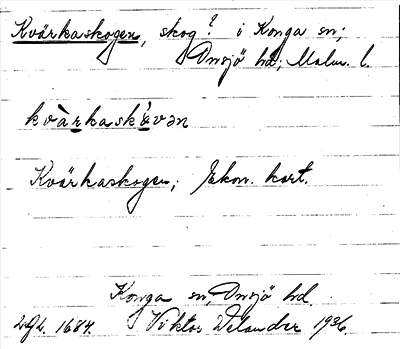 Kvärkaskogen, skog? i Konga sn;
Onsjö hd; Malm. l.
kvàrkaskɷ́vən
Kvärkaskogen; Ekon. kart.
Konga sn, Onsjö hd.
LGL. 1684. Viktor Welander 1936.